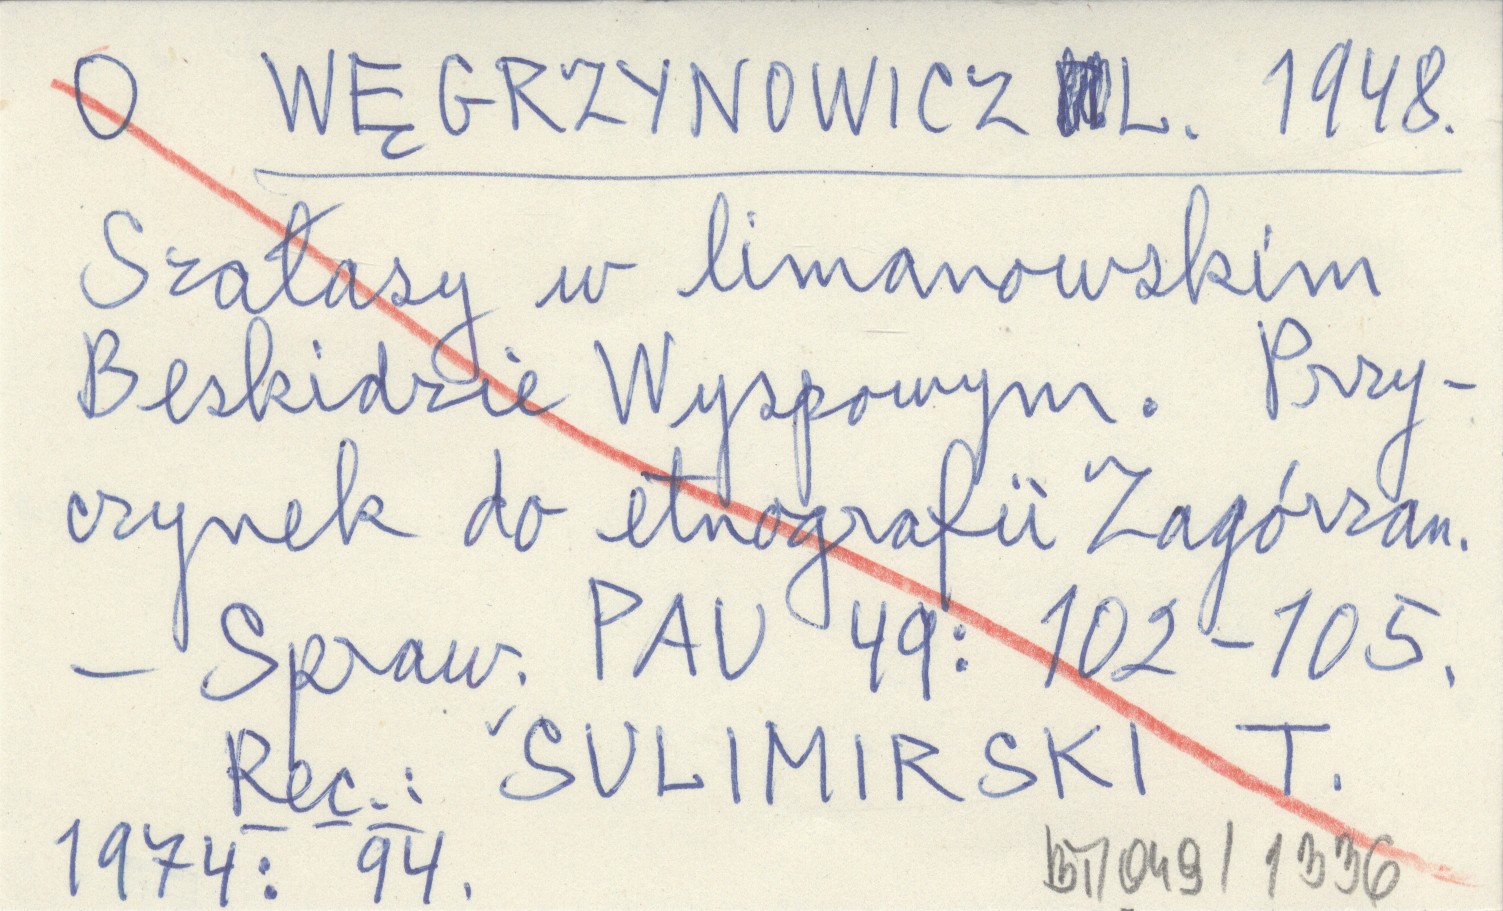 O WĘGRZYNOWICZ L. 1948.
Szałasy w limanowskim
Beskidzie Wyspowym. Przy-
czynek do etnografii Zagórzan.
— Spraw. PAU 49: 102-105.
Rec.: SULIMIRSKI T.
1974: 94.
/1336